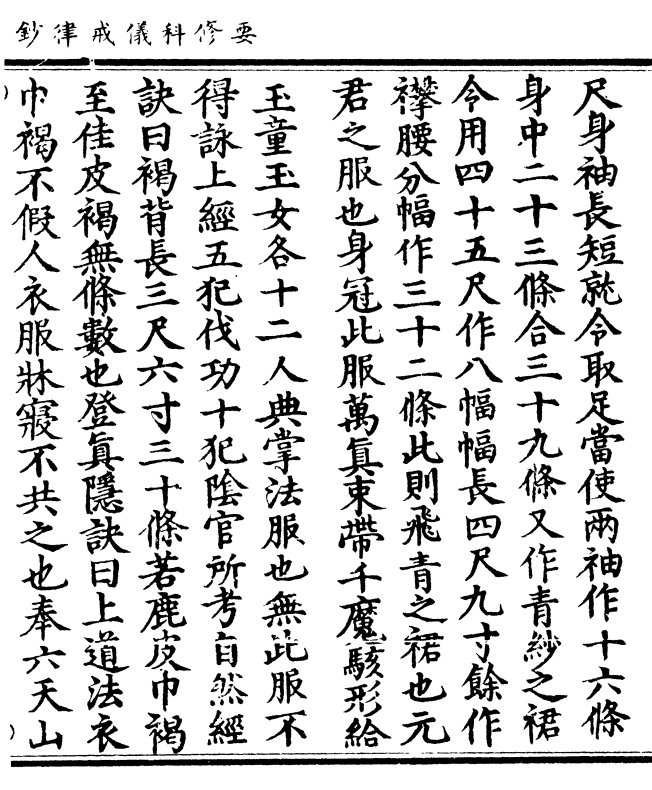 要修科儀戒律鈔
尺身袖長短就令取足當使兩袖作十六條
身中二十三條合三十九條又作青紗之裙
令用四十五尺作八幅幅長四尺九寸餘作
襻腰分幅作三十二條此則飛青之裙也元
君之服也身冠此服萬真束帶千魔駭形給
玉童玉女各十二人典掌法服也無此服不
得詠上經五犯伐功十犯陰官所考自然經
訣曰褐背長三尺六寸三十條若鹿皮巾褐
至佳皮褐無條數也登真隱訣曰上道法衣
巾褐不假人衣服牀寢不共之也奉六天山